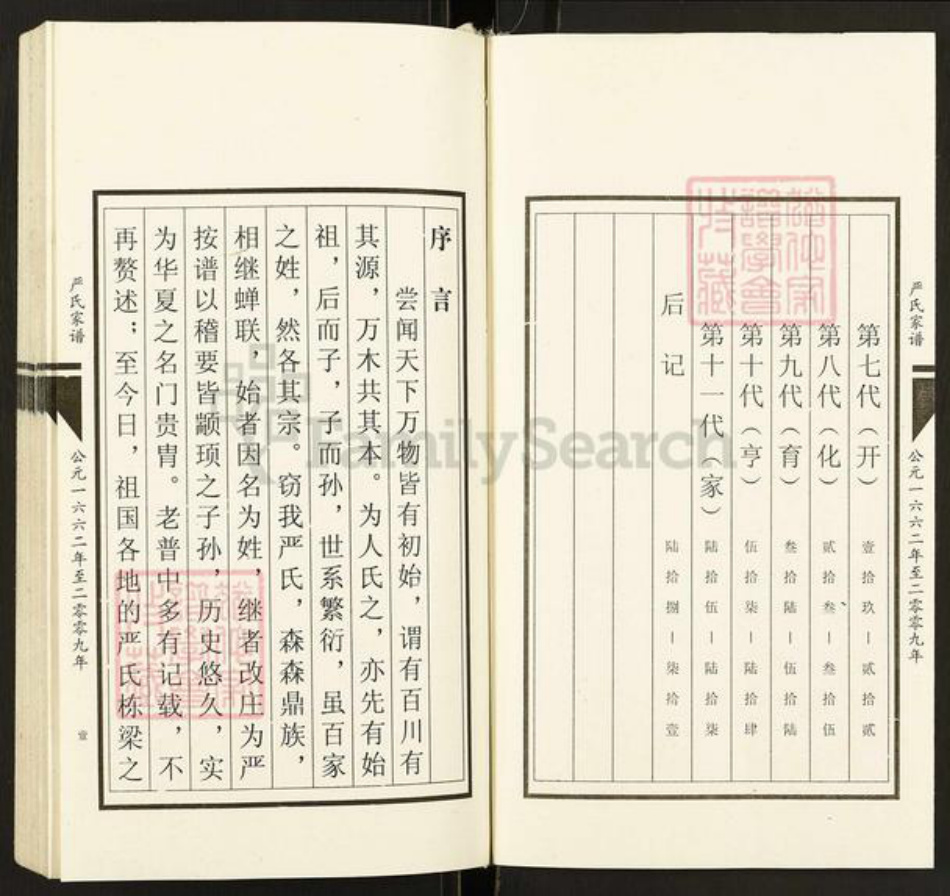 严氏家谱
公元一六六二年至二零零九年
第七代（开） 壹拾玖—贰拾贰
第八代（化） 贰拾叁、—叁拾伍
第九代（育） 叁拾陆—伍拾陆
第十代（亨） 伍拾柒—陆拾肆
第十一代（家） 陆拾伍—陆拾柒
后记 陆拾捌—柒拾壹
序言
尝闻天下万物皆有初始，谓有百川有
其源，万木共其本。为人氏之，亦先有始
祖，后而子，子而孙，世系繁衍，虽百家
之姓，然各其宗。窃我严氏，森森鼎族，
相继蝉联，始者因名为姓，继者改庄为严
按谱以稽要皆颛顼之子孙，历史悠久，实
为华夏之名门贵胄。老普中多有记载，不
再赘述；至今日，祖国各地的严氏栋梁之
严氏家谱
公元一六六二年至二零零九年
壹
FamilySearch